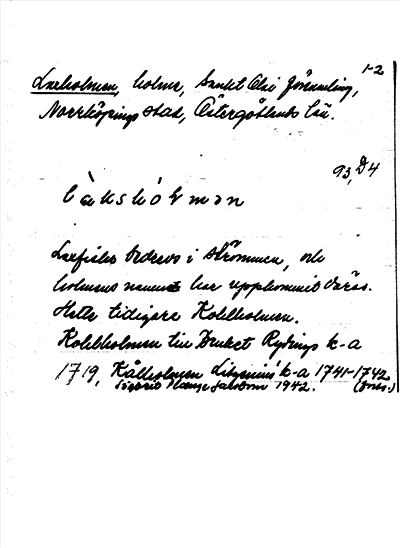 1-2
Laxholmen, holme, Sankt Olai församling,
Norrköpings stad, Östergötlands län.
93, D4
làkshól mən
Laxfiske bedrevs i Strömmen, och
holmens namn har uppkommit därav.
Hette tidigare Kohlholmen.
Kohlholmen Bruket Rydings k-a
1719, Kålholmen k-a 1741-1742
1942.